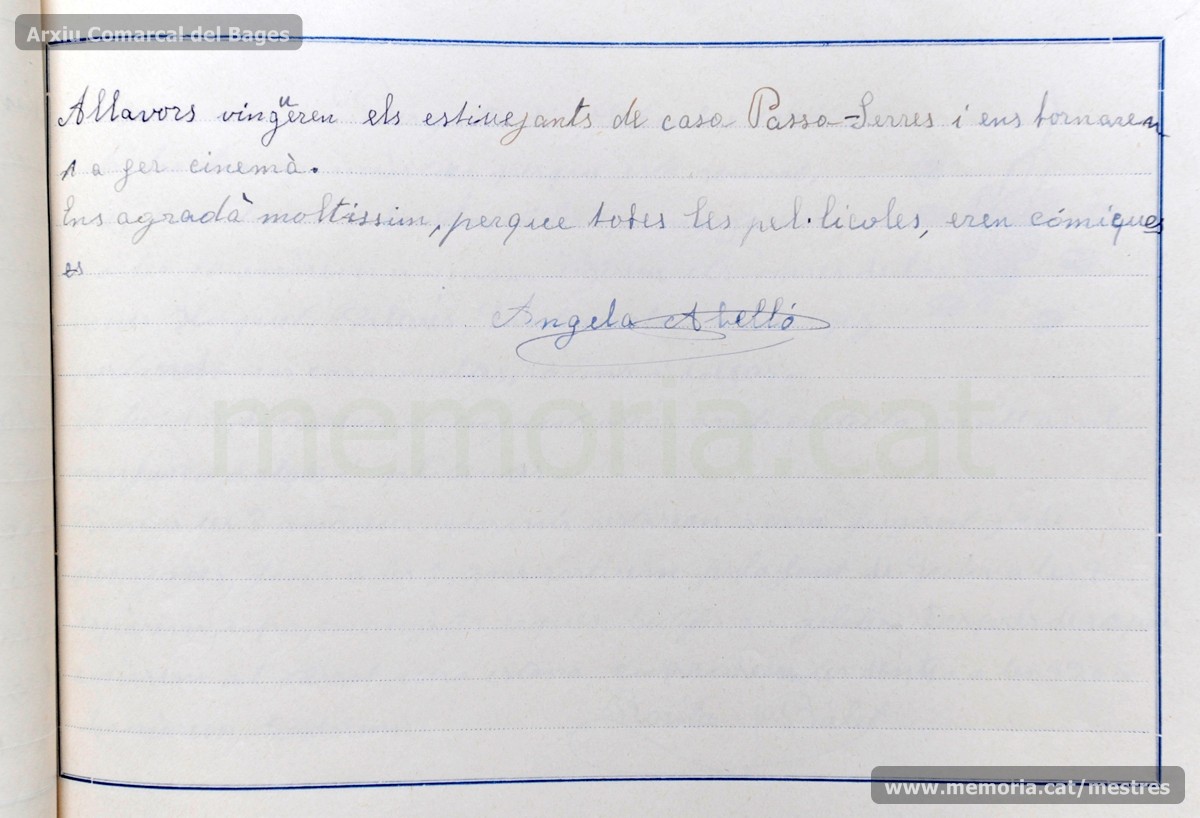 Arxiu Comarcal del Bages
Allavors vingüeren els estiuejants de casa Passa-Serres i ens tornaren
a fer cinemà.
Ens agradà moltíssim, perque totes les pel·licoles, eren cómiques
es
Angela Abelló
memoria.cat
www.memoria.cat/mestres